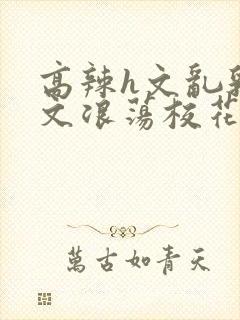 高辣h文乱乳
文浪荡校花
萬古如青天